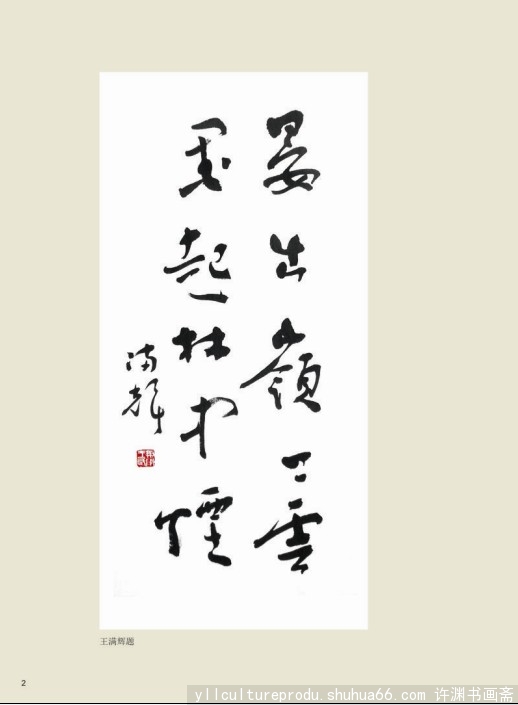 晏出嶺雲
起林煙
滿輝
王满辉题
2
yllcultureprodu.shuhua66.com 许渊书画斋